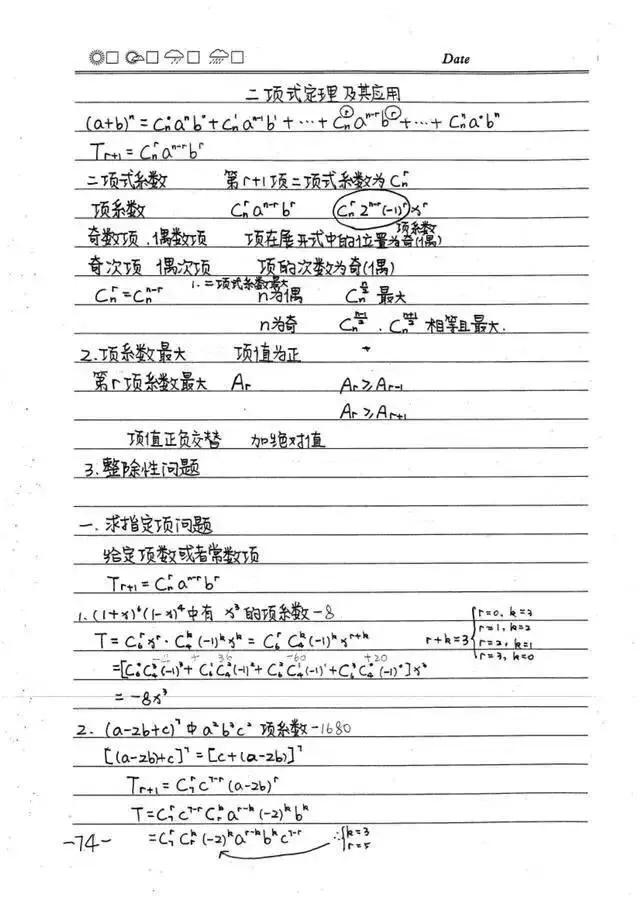 Date
二项式定理及其应用
(a+b)ⁿ = Cₙ⁰aⁿb⁰ + Cₙ¹aⁿ⁻¹b¹ + … + Cₙʳaⁿ⁻ʳbʳ + … + Cₙⁿa⁰bⁿ
Tᵣ₊₁ = Cₙʳaⁿ⁻ʳbʳ
二项式系数 第r+1项二项式系数为Cₙʳ
项系数 Cₙʳaⁿ⁻ʳbʳ Cₙʳ2ⁿ⁻ʳ(-1)ʳxʳ
项系数
奇数项、偶数项 项在展开式中的位置为奇(偶)
奇次项 偶次项 项的次数为奇(偶)
1.二项式系数最大
Cₙʳ = Cₙⁿ⁻ʳ n为偶 Cₙ^(n/2) 最大
n为奇 Cₙ^((n-1)/2)、Cₙ^((n+1)/2) 相等且最大.
2.项系数最大 项值为正
第r项系数最大 Aᵣ Aᵣ≥Aᵣ₋₁
Aᵣ≥Aᵣ₊₁
项值正负交替 加绝对值
3.整除性问题
一.求指定项问题
给定项数或者常数项
Tᵣ₊₁ = Cₙʳaⁿ⁻ʳbʳ
1.(1+x)⁶(1-x)⁴中有 x³的项系数-8
T = C₆ʳxʳ·C₄ᵏ(-1)ᵏxᵏ = C₆ʳC₄ᵏ(-1)ᵏxʳ⁺ᵏ r+k=3 {r=0, k=3
r=1, k=2
r=2, k=1
r=3, k=0
36 -60 +20
=[C₆⁰C₄³(-1)³+C₆¹C₄²(-1)²+C₆²C₄¹(-1)¹+C₆³C₄⁰(-1)⁰]x³
= -8x³
2.(a-2b+c)⁷中a²b³c²项系数-1680
[(a-2b)+c]⁷=[c+(a-2b)]⁷
Tᵣ₊₁ = C₇ʳc⁷⁻ʳ(a-2b)ʳ
T=C₇ʳc⁷⁻ʳCᵣᵏaʳ⁻ᵏ(-2)ᵏbᵏ
=C₇ʳCᵣᵏ(-2)ᵏaʳ⁻ᵏbᵏc⁷⁻ʳ ∵{k=3
r=5
-74-